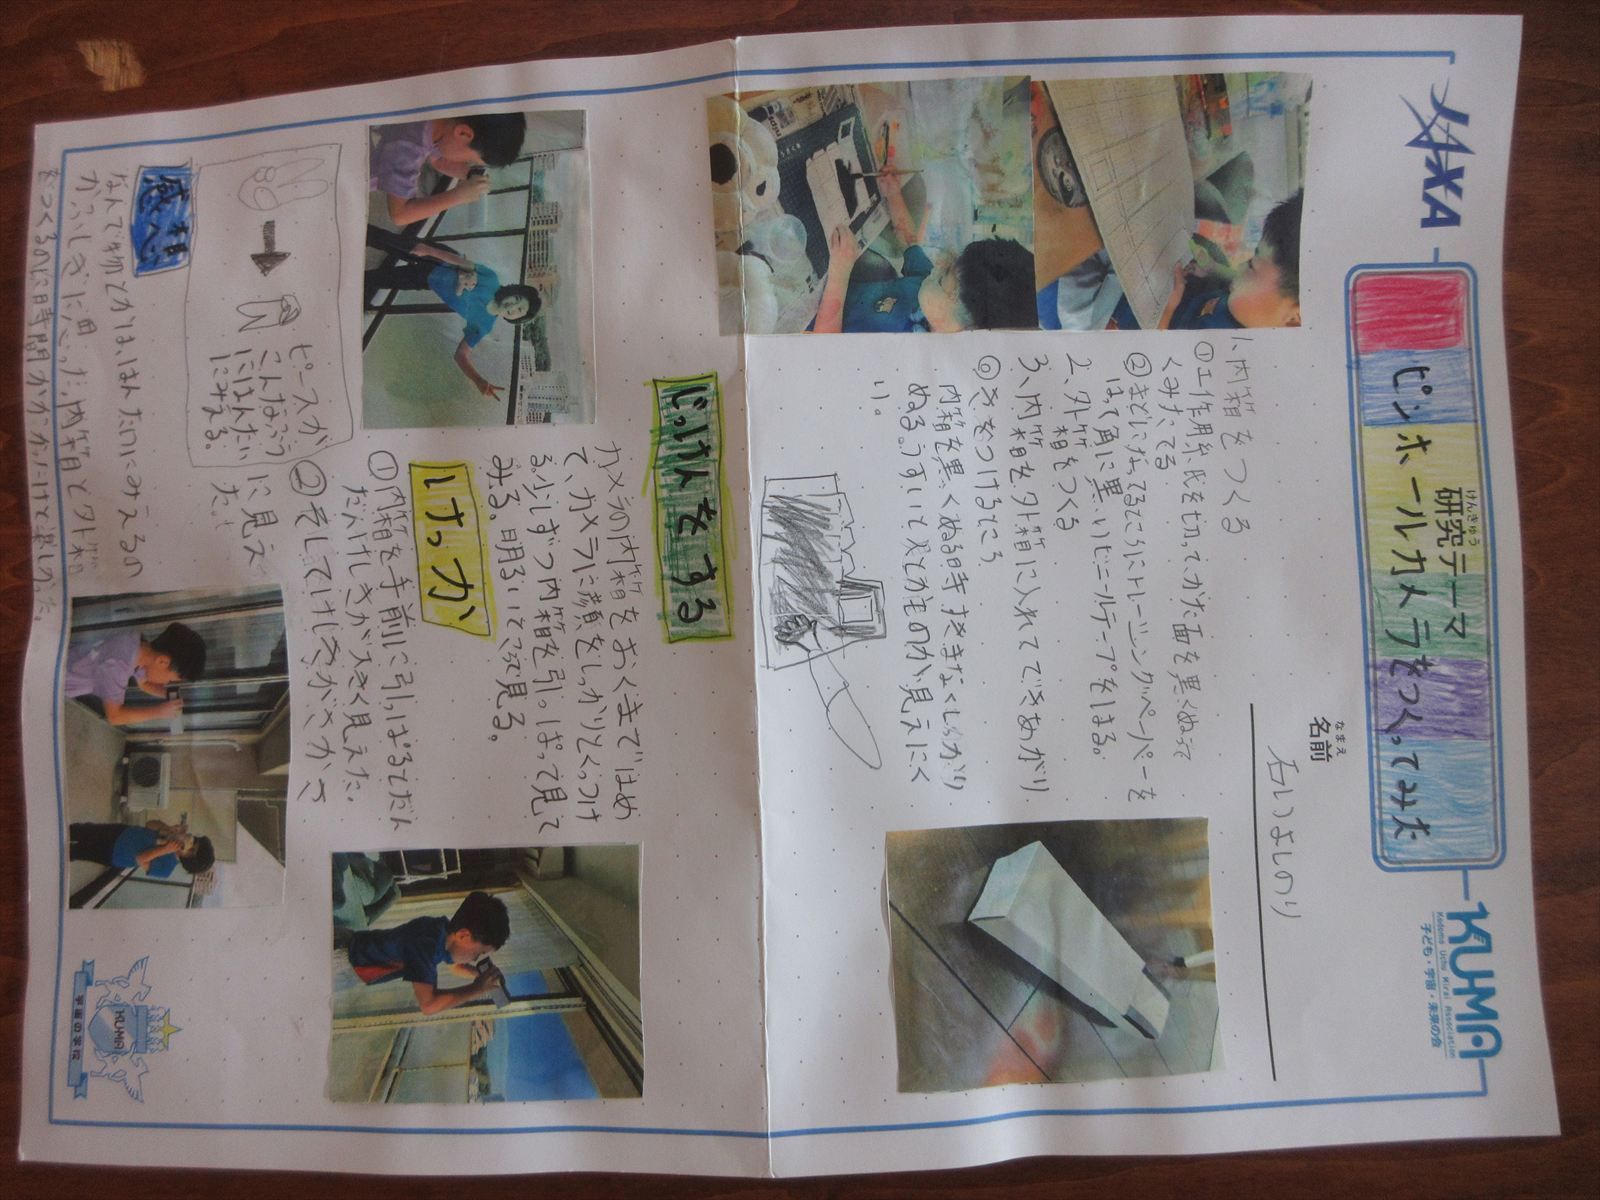 JAXA
研究テーマ
けんきゅう
ピンホールカメラをつくってみた
KUMA
Kodomo Uchu Mirai Association
子ども・宇宙・未来の会
なまえ
名前
石いよしのり
1、内箱をつくる
①工作用紙を切ってかた面を黒くぬって
くみたてる
②まどになってるところにトレーシングペーパーを
はって角に黒いビニールテープをはる。
2、外箱をつくる
3、内箱を外箱に入れてできあがり
⑥きをつけるところ
内箱を黒くぬる時すきまなくしっかり
ぬる。うすいと光とかものが見えにく
い。
じっけんをする
カメラの内箱をおくまではめ
て、カメラに顔をしっかりとくっつけ
る。少しずつ内箱を引っぱって見て
みる。明るいそとを見る。
けっか
①内箱を手前に引っぱるとだん
だんけしきが大きく見えた。
②そしてけしきがさかさ
に見え
た。
ピースが
こんなふう
にはんたい
にみえる。
感想
なんで物とかは、はんたいにみえるの
かふしぎに思った。内箱と外箱
をつくるのに時間がかかったけど楽しかった。
KUMA
宇宙の学校